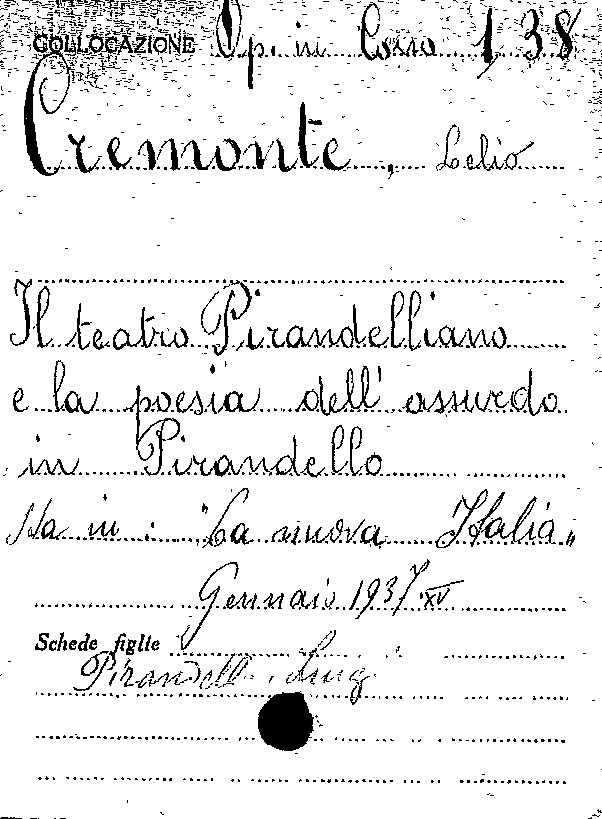 COLLOCAZIONE Op. in Corso 1, 38
Cremonte, Lelio
Il teatro Pirandelliano
e la poesia dell'assurdo
in Pirandello
Sta in: "La nuova Italia"
Gennaio 1937 XV
Schede figlie
Pirandello Luigi